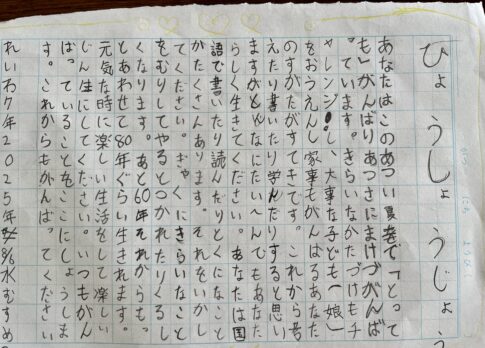 ひょうしょうじょう
あなたはこのあつい夏巻で「とって
も」がんばりあつさにまけづがんば
っています。きらいなかたづけもチ
ャレンジ!し、大事な子ども(娘)
をおうえんし家事もがんばるあなた
のすがたがすてきです。これから考
えたり書いたり学んだりすると思い
ますがどんなにたいへんでもあなた
らしく生きてください。あなたは国
語で書いたり読んだりとくになこと
がたくさんあります。それをいかし
てください。ぎゃくにきらいなこと
をむりしてやるとつかれたりくるし
くなります。あと60年それからもっ
とあわせて80年ぐらい生きれます。
元気な時に楽しい生活をして楽しい
じん生にしてください。いつもがん
ばっていることをここにしょうしま
す。これからもがんばってください
れいわ7年2025年8/6水むすめ